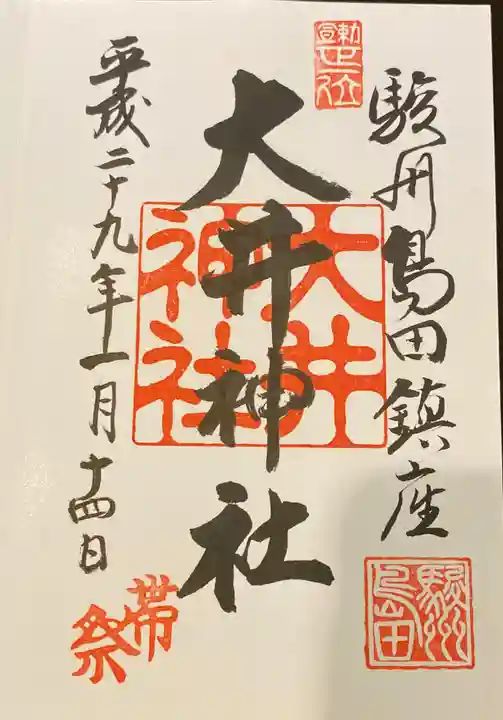 駿州島田鎮座
駿州島田
勅宣正一位
大井神社
大井神社
平成二十九年十一月十四日
帯祭